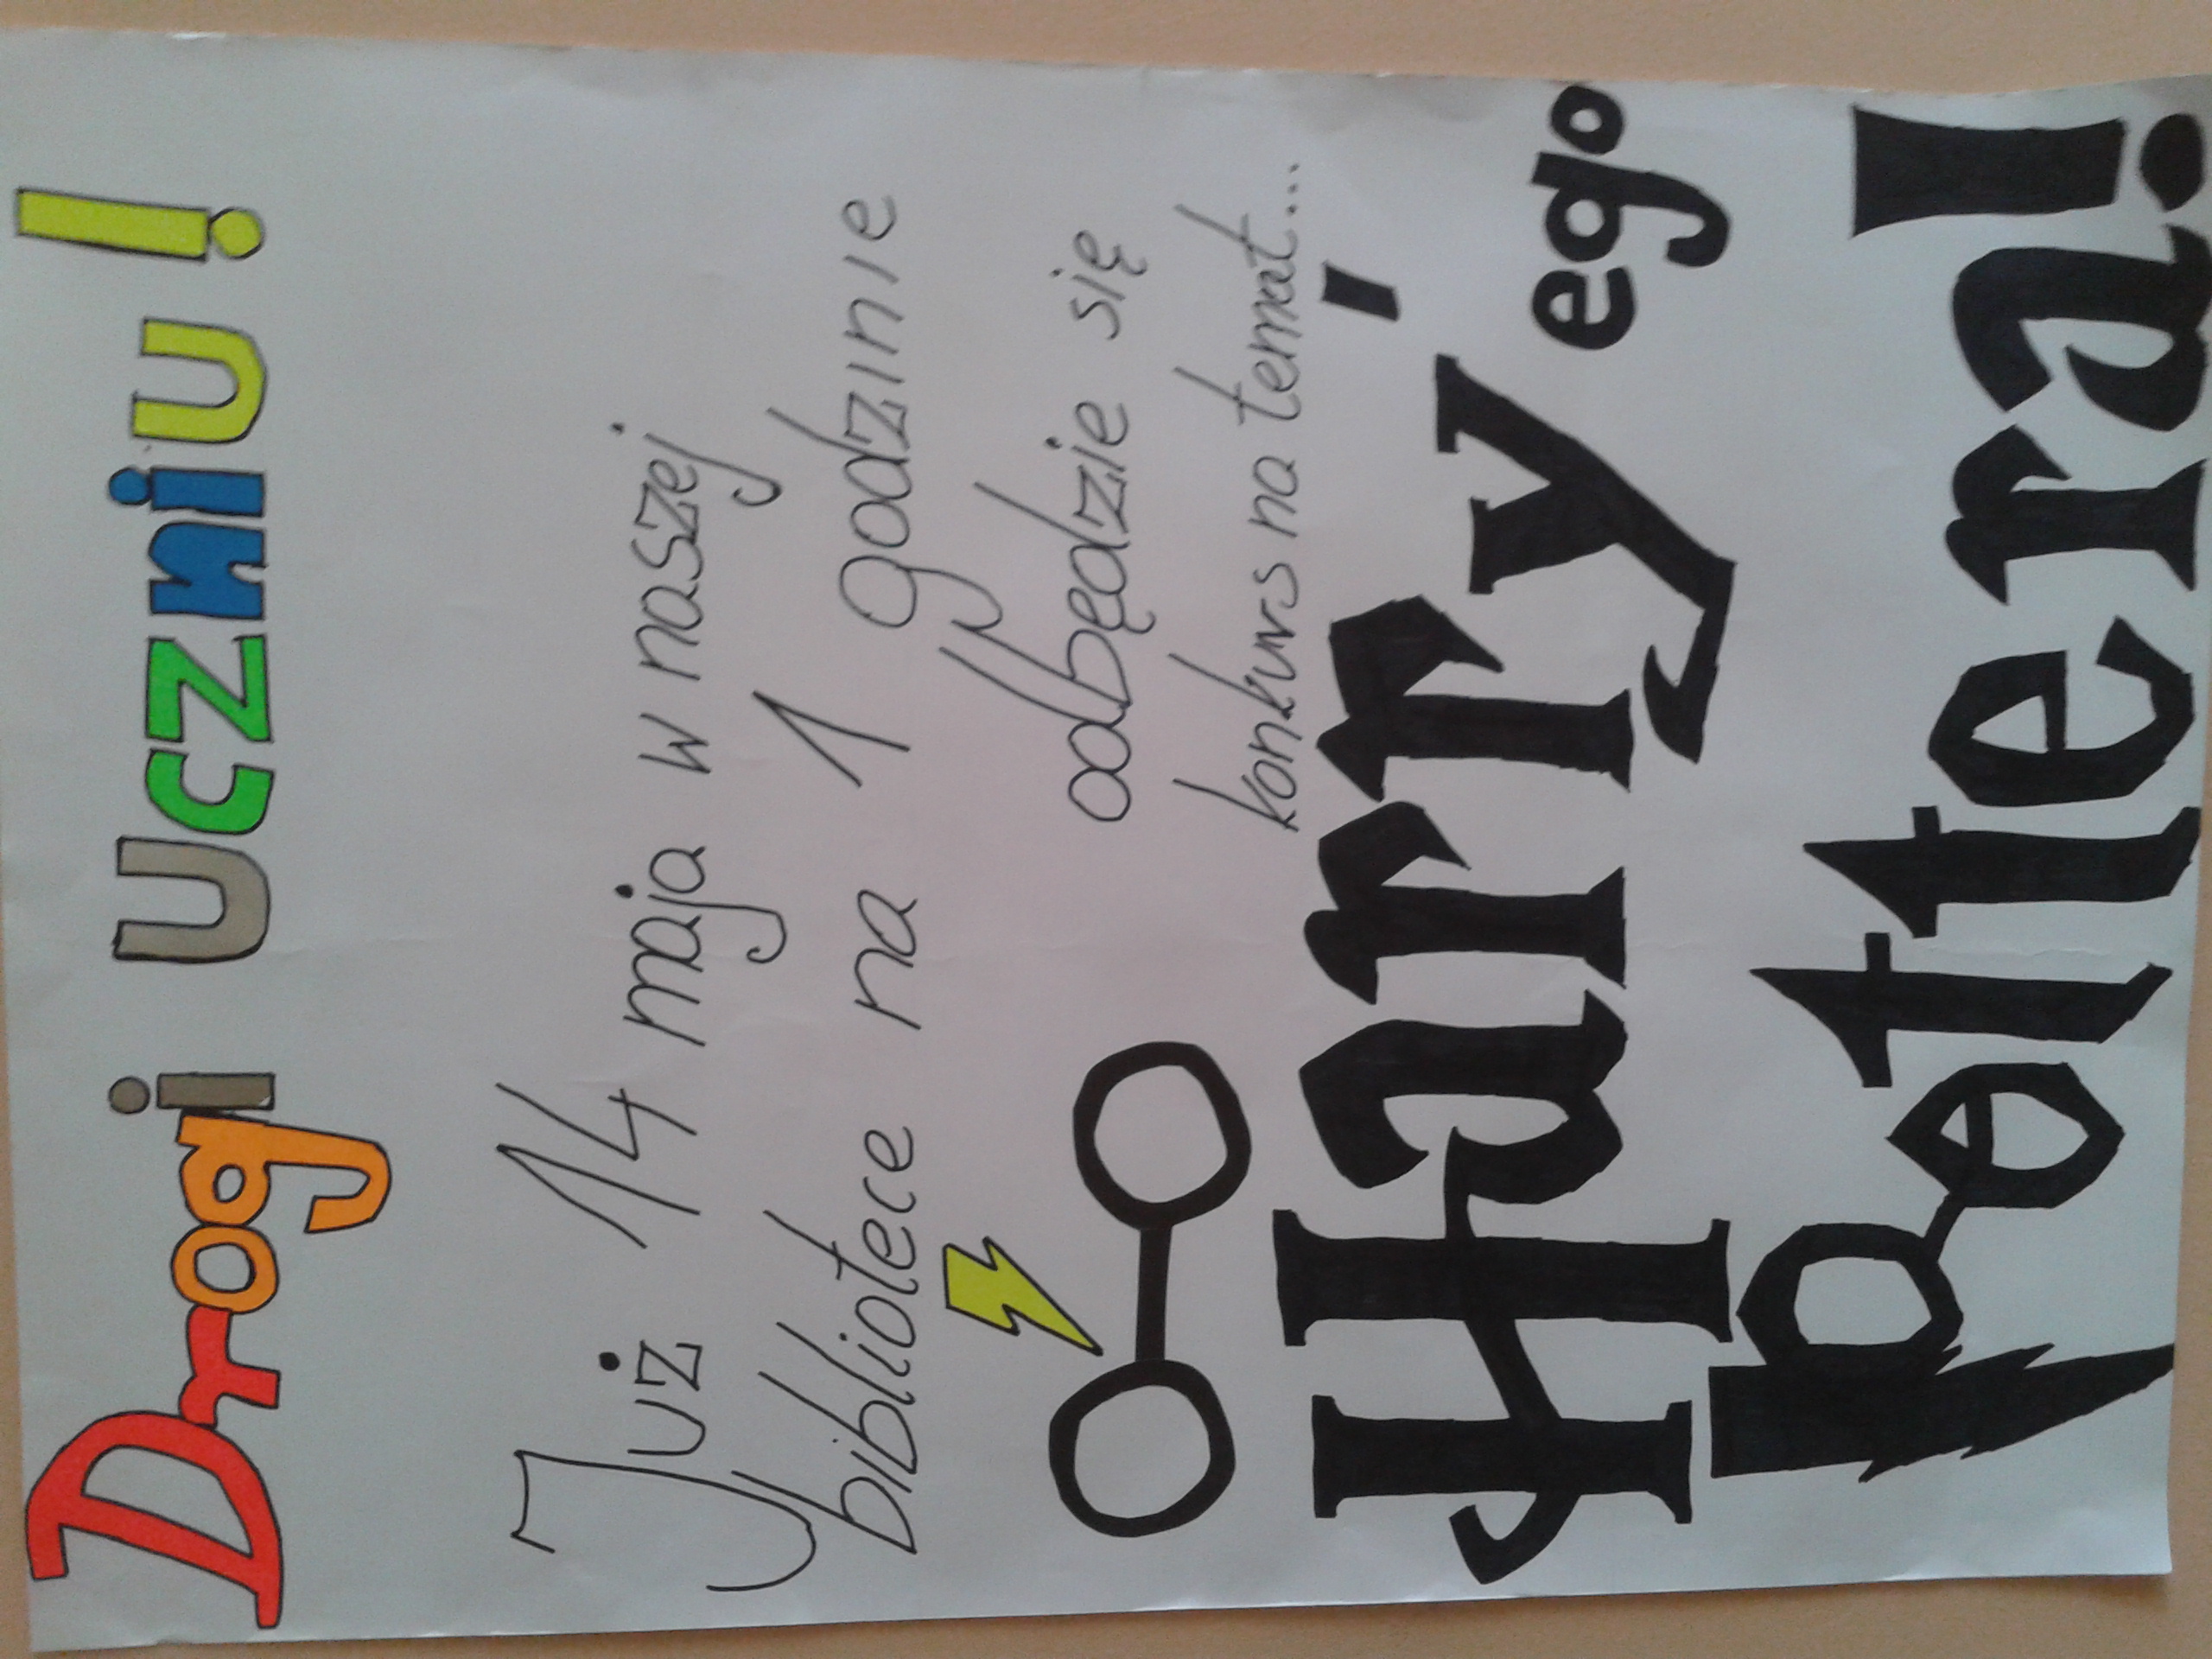 Drogi Uczniu!
Już 14 maja w naszej
bibliotece na 1 godzinie
odbędzie się
konkurs na temat...
Harry'ego
Pottera!